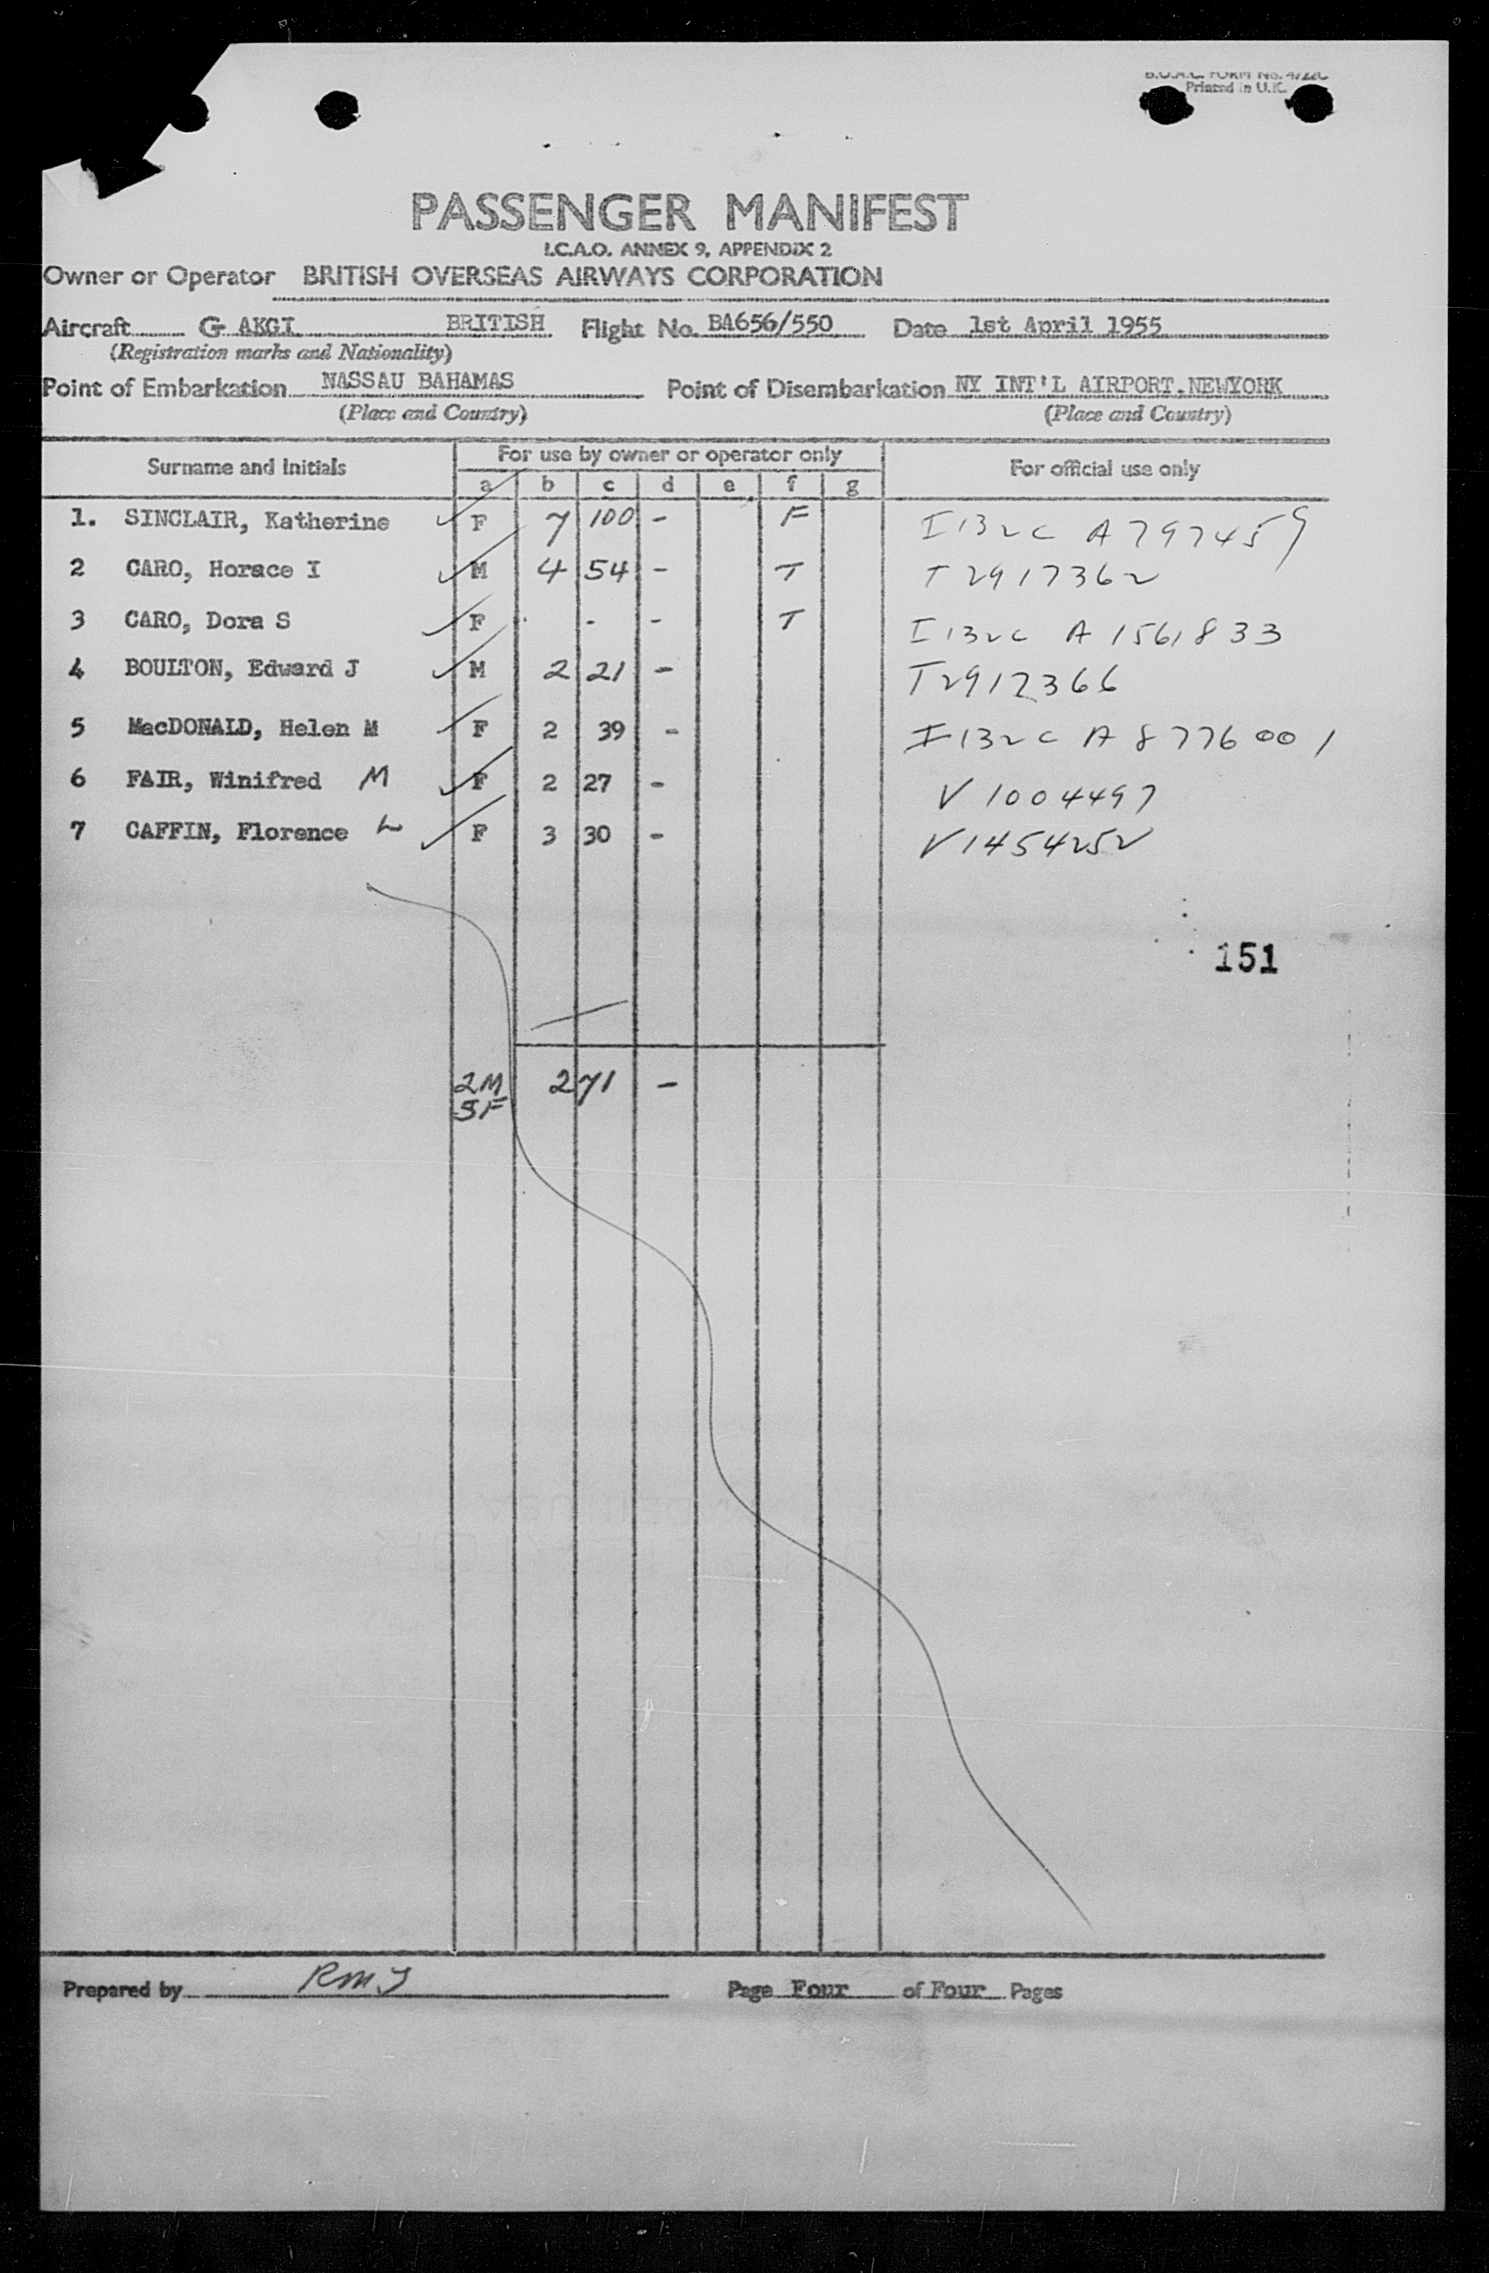 B.O.A.C. FORM No. 4722C
Printed in U.K.
PASSENGER MANIFEST
I.C.A.O. ANNEX 9, APPENDIX 2
Owner or Operator BRITISH OVERSEAS AIRWAYS CORPORATION
Aircraft G AKGI BRITISH Flight No. BA656/550 Date 1st April 1955
(Registration marks and Nationality)
Point of Embarkation NASSAU BAHAMAS Point of Disembarkation NY INT'L AIRPORT.NEWYORK
(Place and Country) (Place and Country)
Surname and Initials For use by owner or operator only For official use only
a b c d e f g
1. SINCLAIR, Katherine F 7 100 - F I132c A797459
2 CARO, Horace I M 4 54 - T T2917362
3 CARO, Dora S F - - - T I132c A1561833
4 BOULTON, Edward J M 2 21 - T2912366
5 MacDONALD, Helen M F 2 39 - I132c A8776001
6 FAIR, Winifred M F 2 27 - V1004497
7 CAFFIN, Florence L F 3 30 - V1454252
151
2M 271 -
5F
Prepared by Page Four of Four Pages